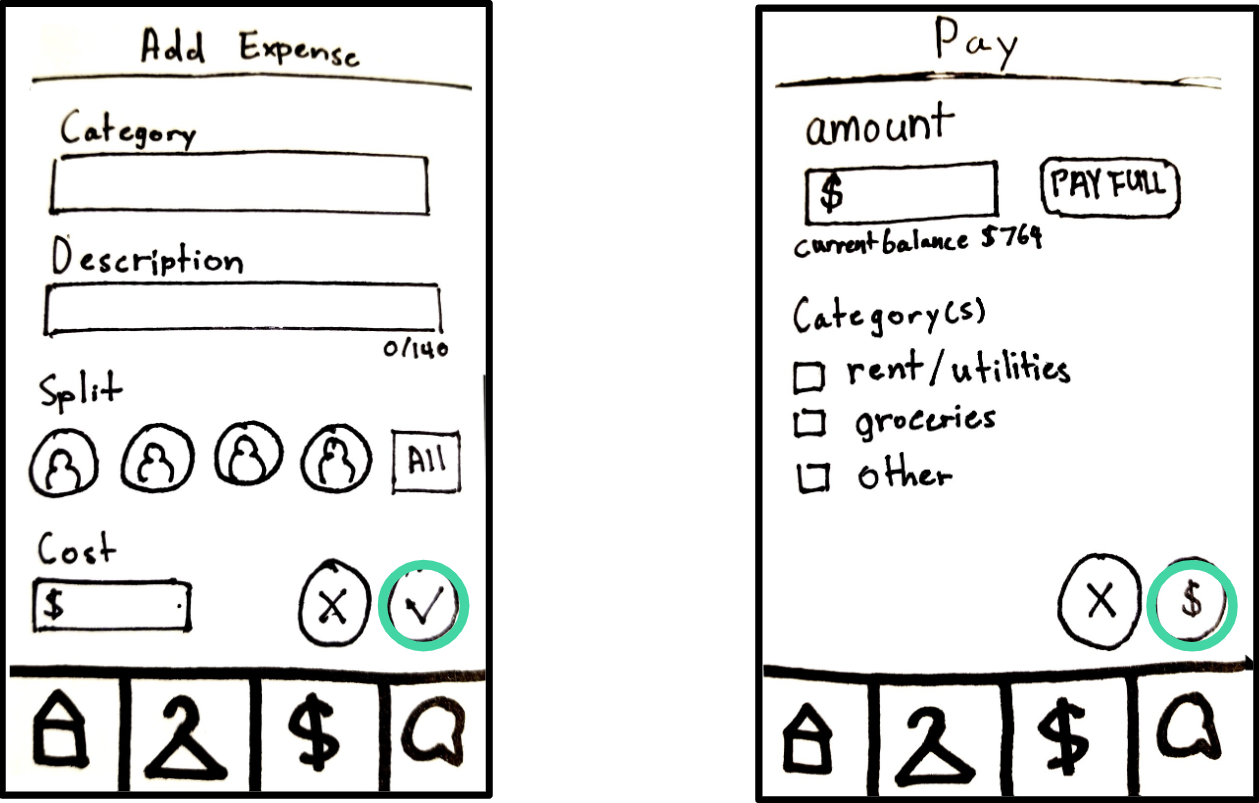 Add Expense
Category
Description
0/140
Split
All
Cost
$
X
$
Pay
amount
$ PAY FULL
current balance $769
Category(s)
rent/utilities
groceries
other
X $
$